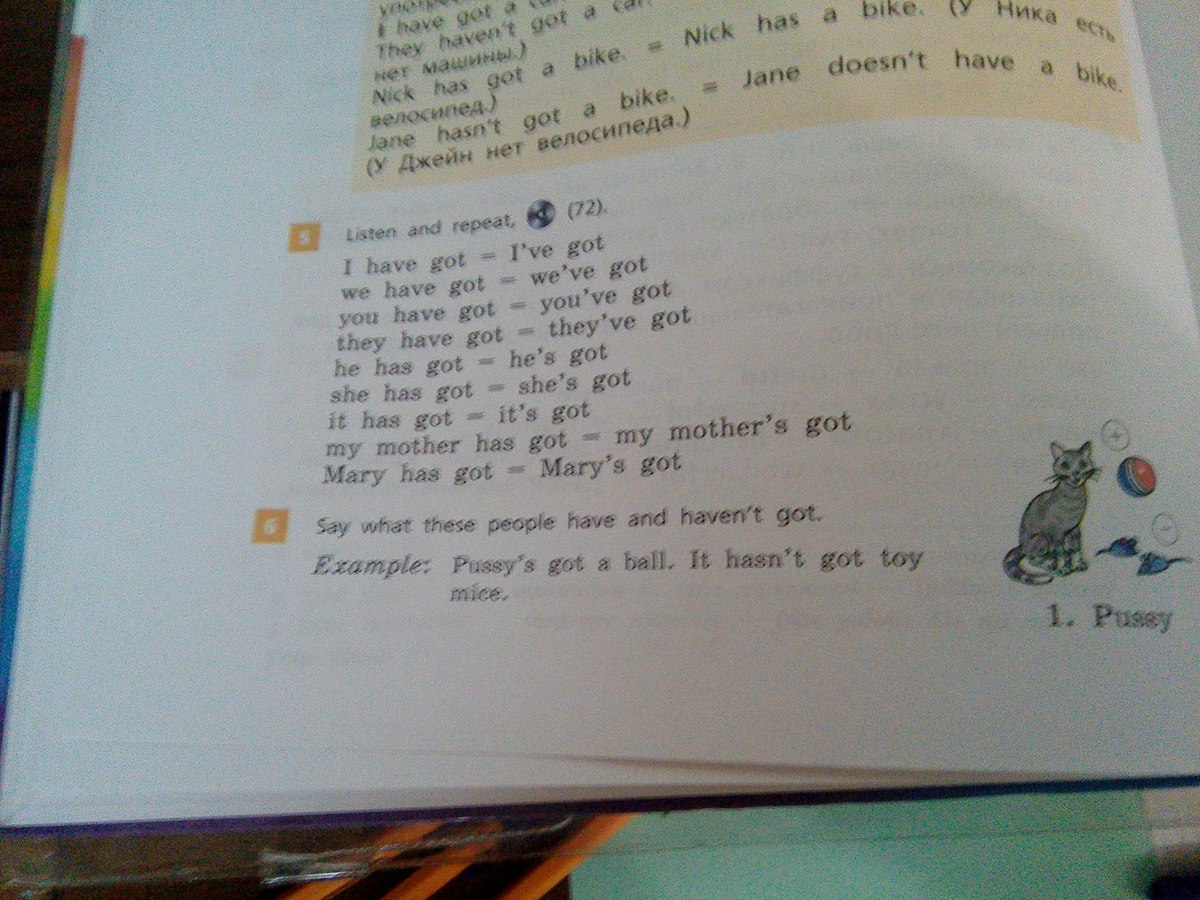 I have got a car.
They haven't got a car.
нет машины.)
Nick has got a bike. = Nick has a bike. (У Ника есть
велосипед.)
Jane hasn't got a bike. = Jane doesn't have a bike.
(У Джейн нет велосипеда.)
5 Listen and repeat, (72).
I have got = I've got
we have got = we've got
you have got = you've got
they have got = they've got
he has got = he's got
she has got = she's got
it has got = it's got
my mother has got = my mother's got
Mary has got = Mary's got
6 Say what these people have and haven't got.
Example: Pussy's got a ball. It hasn't got toy
mice.
+
–
1. Pussy